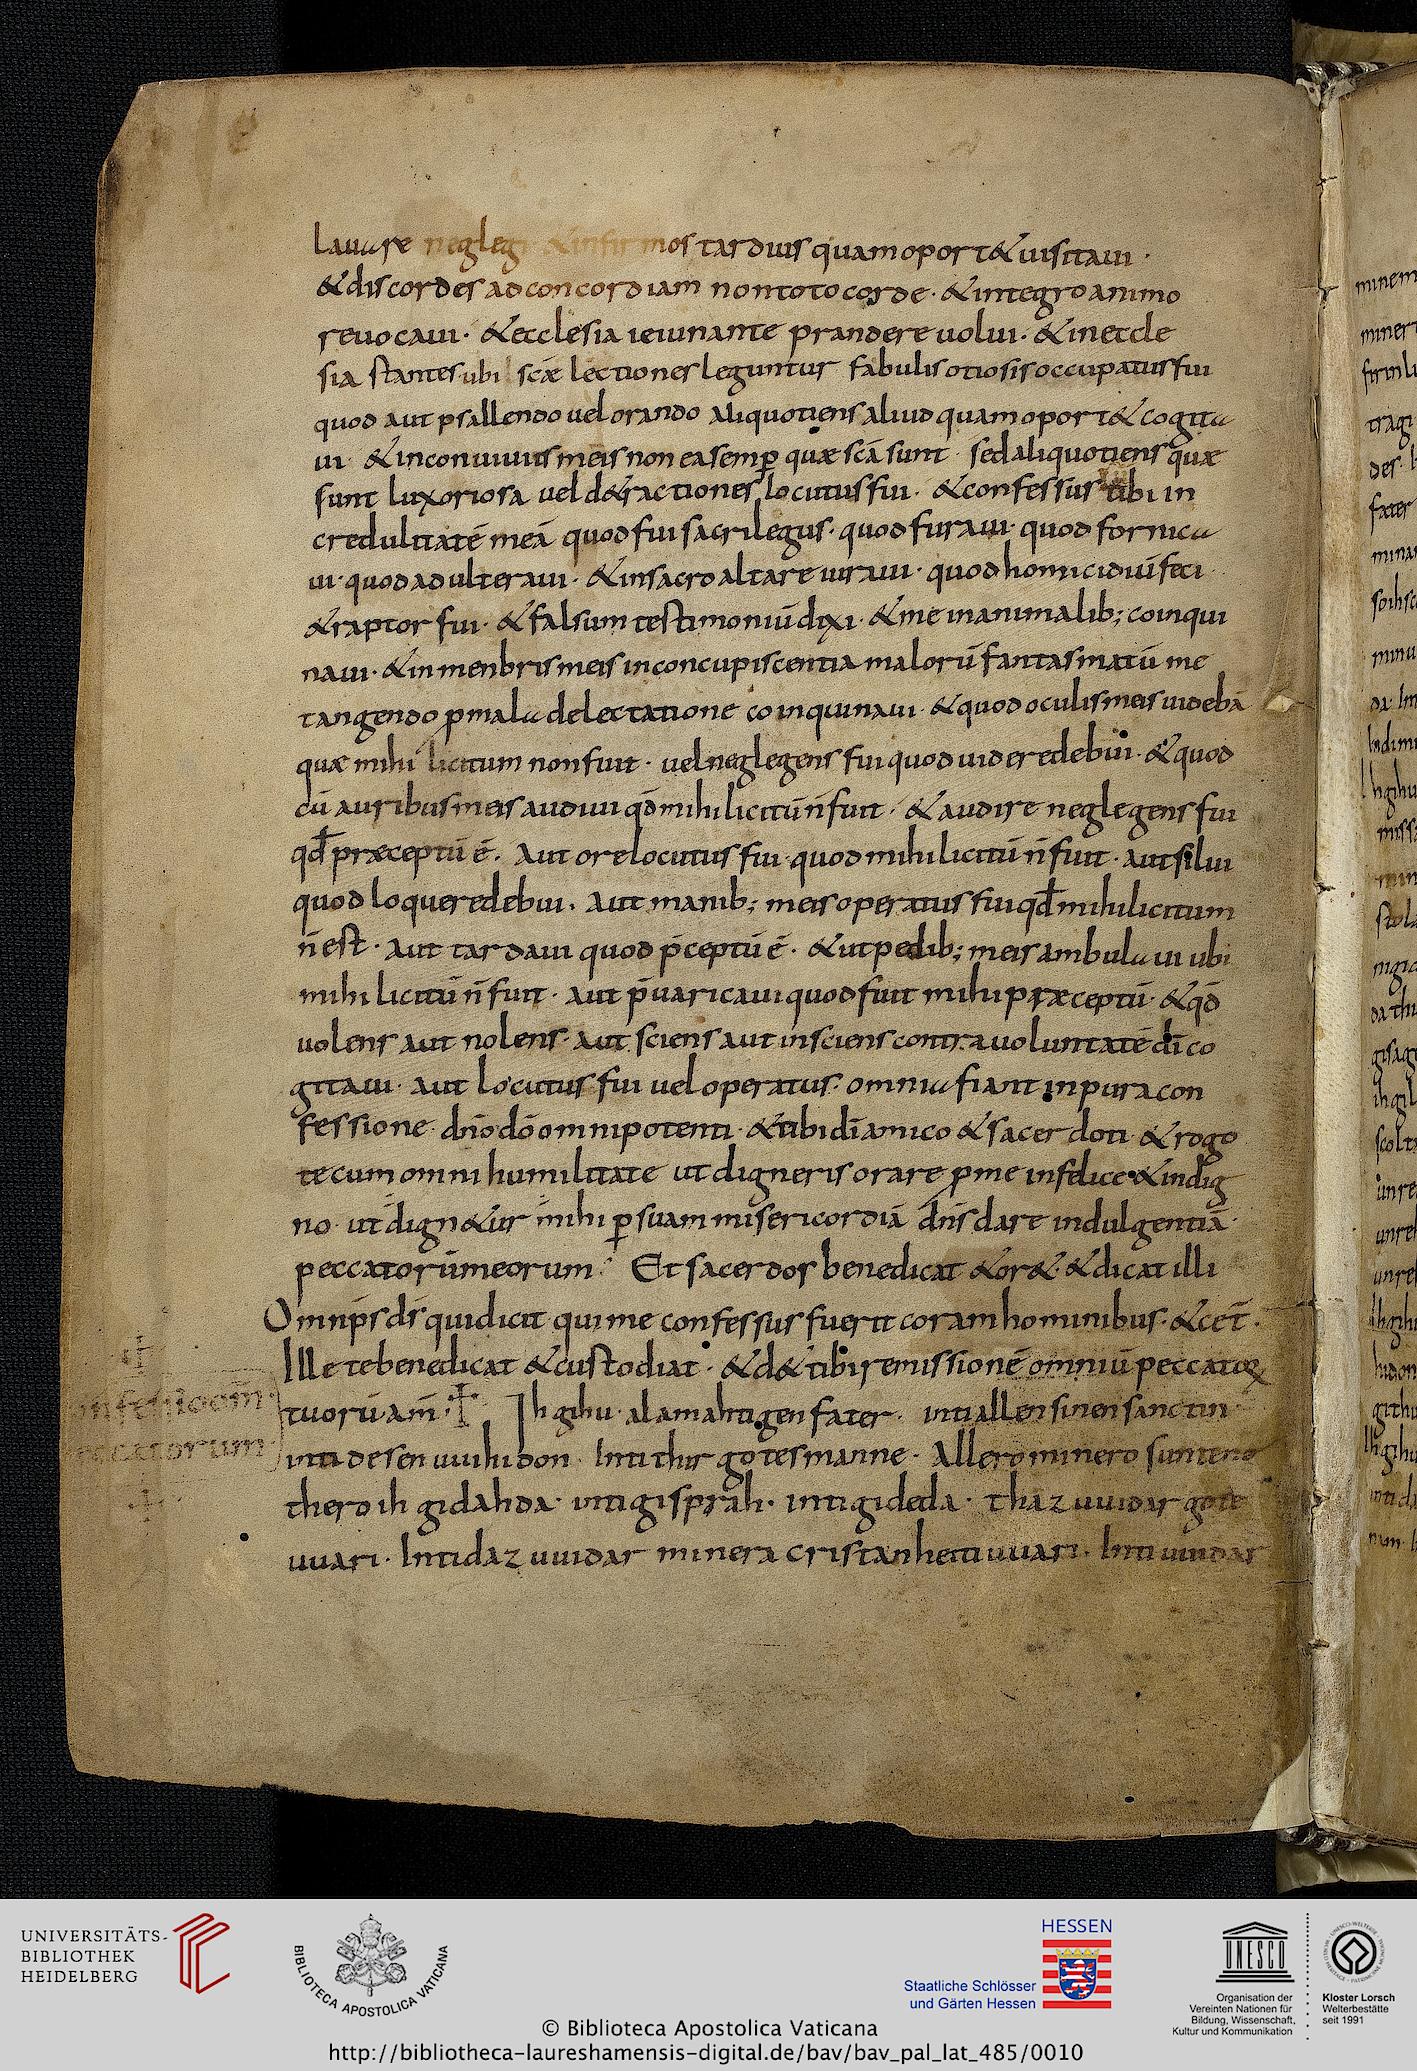 Lauare neglegi & infirmos tardius quam oport& uisitaui ·
& discordes ad concordiam non toto corde · & integro animo
reuocaui · & ecclesia ieiunante prandere uolui · & in eccle
sia stantes ubi scæ lectiones leguntur fabulis otiosis occupatus fui
quod aut psallendo uel orando aliquotiens aliud quam oport& cogita
ui · & in conuiuiis meis non ea semp̱ quæ scā sunt · sed aliquotiens quæ
sunt luxoriosa uel d&ractiones locutus fui · & confessus tibi in
credulitatē meā quod fui sacrilegus · quod furaui · quod fornica
ui · quod adulteraui · & in sacro altare iuraui · quod homicidiū feci
& raptor fui · & falsum testimoniū dixi · & me in animalib; coinqui
naui · & in menbris meis in concupiscentia malorū fantasmatū me
tangendo ꝓ mala delectatione coinquinaui · & quod oculis meis uidebā
quæ mihi licitum non fuit · uel neglegens fui quod uidere debui · & quod
cū auribus meis audiui qđ mihi licitū ñ fuit · & audire neglegens fui
qđ præceptū ē · Aut ore locutus fui quod mihi licitū ñ fuit · aut silui
quod loquere debui · Aut manib; meis operatus fui qđ mihi licitum
ñ est · Aut tardaui quod p̄ceptū ē · & ut pedib; meis ambulaui ubi
mihi licitū ñ fuit · Aut p̄uaricaui quod fuit mihi præceptū · & qđ
uolens aut nolens · aut sciens aut insciens contra uoluntatē dī co
gitaui · aut locutus fui uel operatus · omnia fiant in pura con
fessione dn̄o dō omnipotenti · & tibi dī amico & sacerdoti · & rogo
te cum omni humilitate ut digneris orare ꝓ me infelice & indig
no · ut dign&ur mihi ꝑ suam misericordiā dn̄s dare indulgentiā ·
peccatorū meorum · Et sacerdos benedicat & or& · & dicat illi
Omnip̄s ds̄ qui dicit qui me confessus fuerit coram hominibus · & cet̄ ·
Ille te benedicat & custodiat · & d& tibi remissionē omniū peccatoꝝ
tuorū am̄ · Ih gihu alamahtigen fater · inti allen sinen sanctin
inti desen uuihidon · Inti thir gotes manne · Allero minero sunteno
thero ih gidahda · inti gisprah · inti gideda · thaz uuidar gote
uuari · Inti daz uuidar minera cristanheiti uuari · Inti uuidar
peccatorum
UNIVERSITÄTS-
BIBLIOTHEK
HEIDELBERG
BIBLIOTECA APOSTOLICA VATICANA
HESSEN
Staatliche Schlösser
und Gärten Hessen
UNESCO
Organisation der
Vereinten Nationen für
Bildung, Wissenschaft,
Kultur und Kommunikation
Kloster Lorsch
Welterbestätte
seit 1991
© Biblioteca Apostolica Vaticana
http://bibliotheca-laureshamensis-digital.de/bav/bav_pal_lat_485/0010